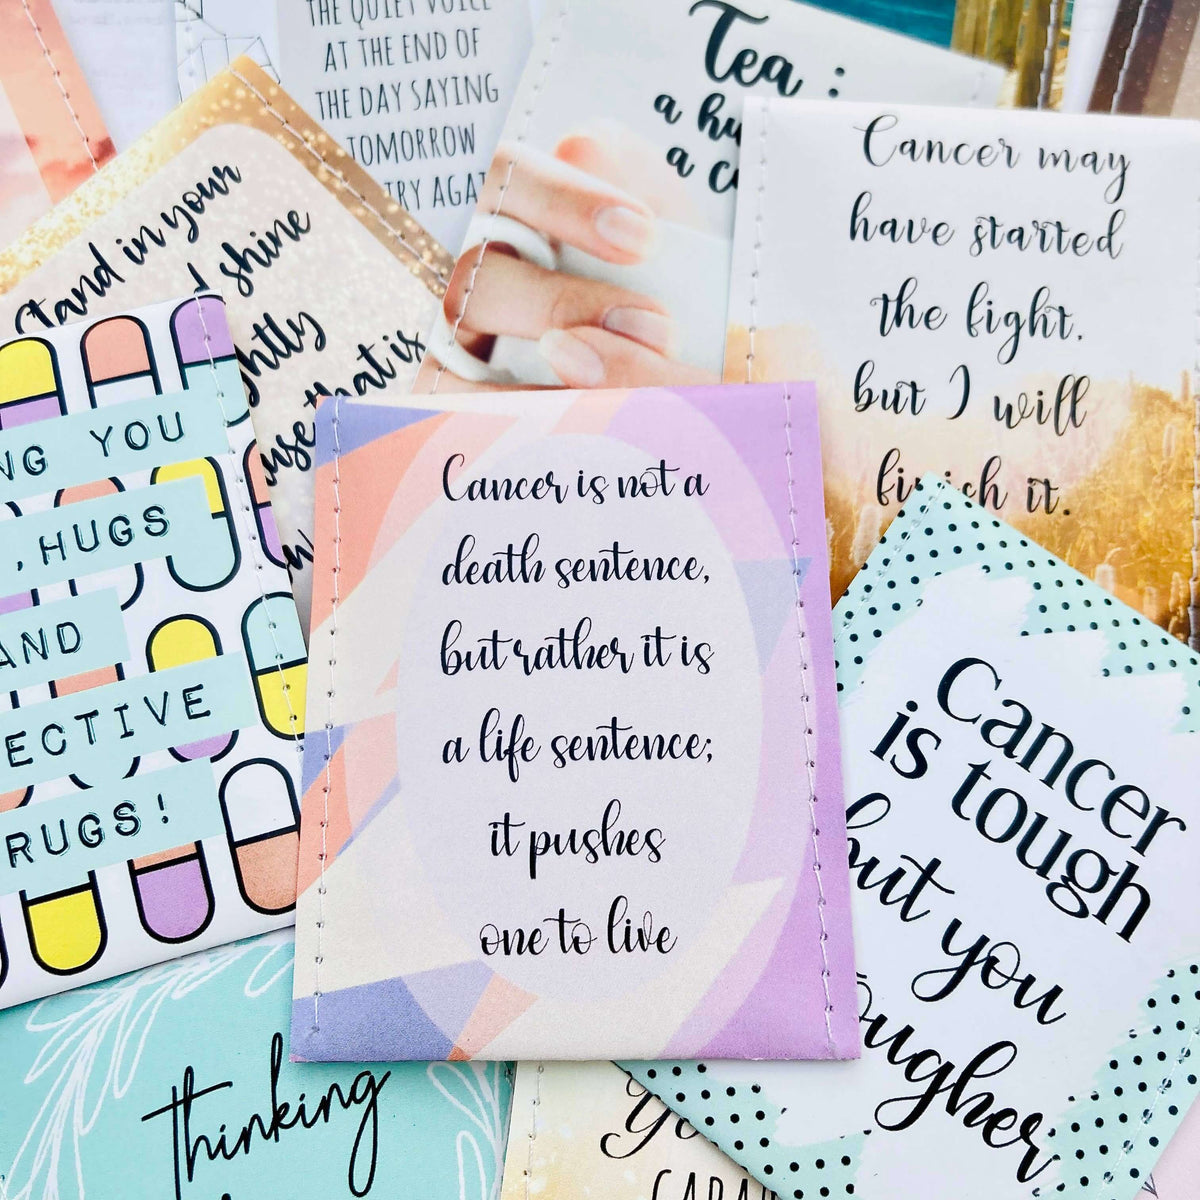 THE QUIET VOICE
AT THE END OF
THE DAY SAYING
TOMORROW
AGAI
Tea :
a hu
a c
Cancer may
have started
the fight.
but I will
finish it.
Stand in your
shine
that is
NG YOU
, HUGS
AND
ECTIVE
RUGS!
Cancer is not a
death sentence,
but rather it is
a life sentence;
it pushes
one to live
Cancer
is tough
but you
ougher
thinking